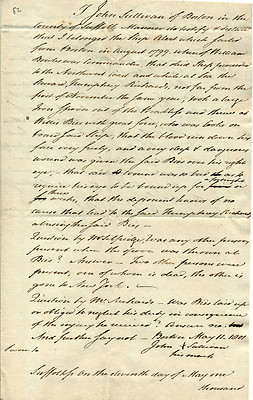 I John Sullivan of Boston in the
County of Suffolk Mariner do testify & declare
that I belonged to the Ship Alert which sailed
from Boston in August 1799, when of William
Bowles was Commander, that said Ship proceeded
to the Northwest coast and while at Sea the
Second, Humphrey Richards, not far from the
first of November the same year, took a large
Iron from one of the and threw at
Willis Bies with great force, who was then on
board said Ship, that the blood run down his
face very freely, and a very deep & dangerous
wound was given the said Bies over his right
eye, that said wound was so bad as to
require his eye to be bound up for
three weeks, that the deponent knows of no
cause that lead to the said Humphrey Richards
abusing the said Bies —
Question by Mr Selfridge, Was any other person
present when the Iron was thrown at
Bies? Answer — Two other persons were
present, one of whom is dead, the other is
gone to New York. —
Question by Mr Richards — Was Bies laid up
or obliged to neglect his duty in consequence
of the injury he received? Answer no.
And further sayeth not — Boston May 11. 1801
John X Sullivan
his mark
Suffolk ss. On the eleventh day of May one
thousand